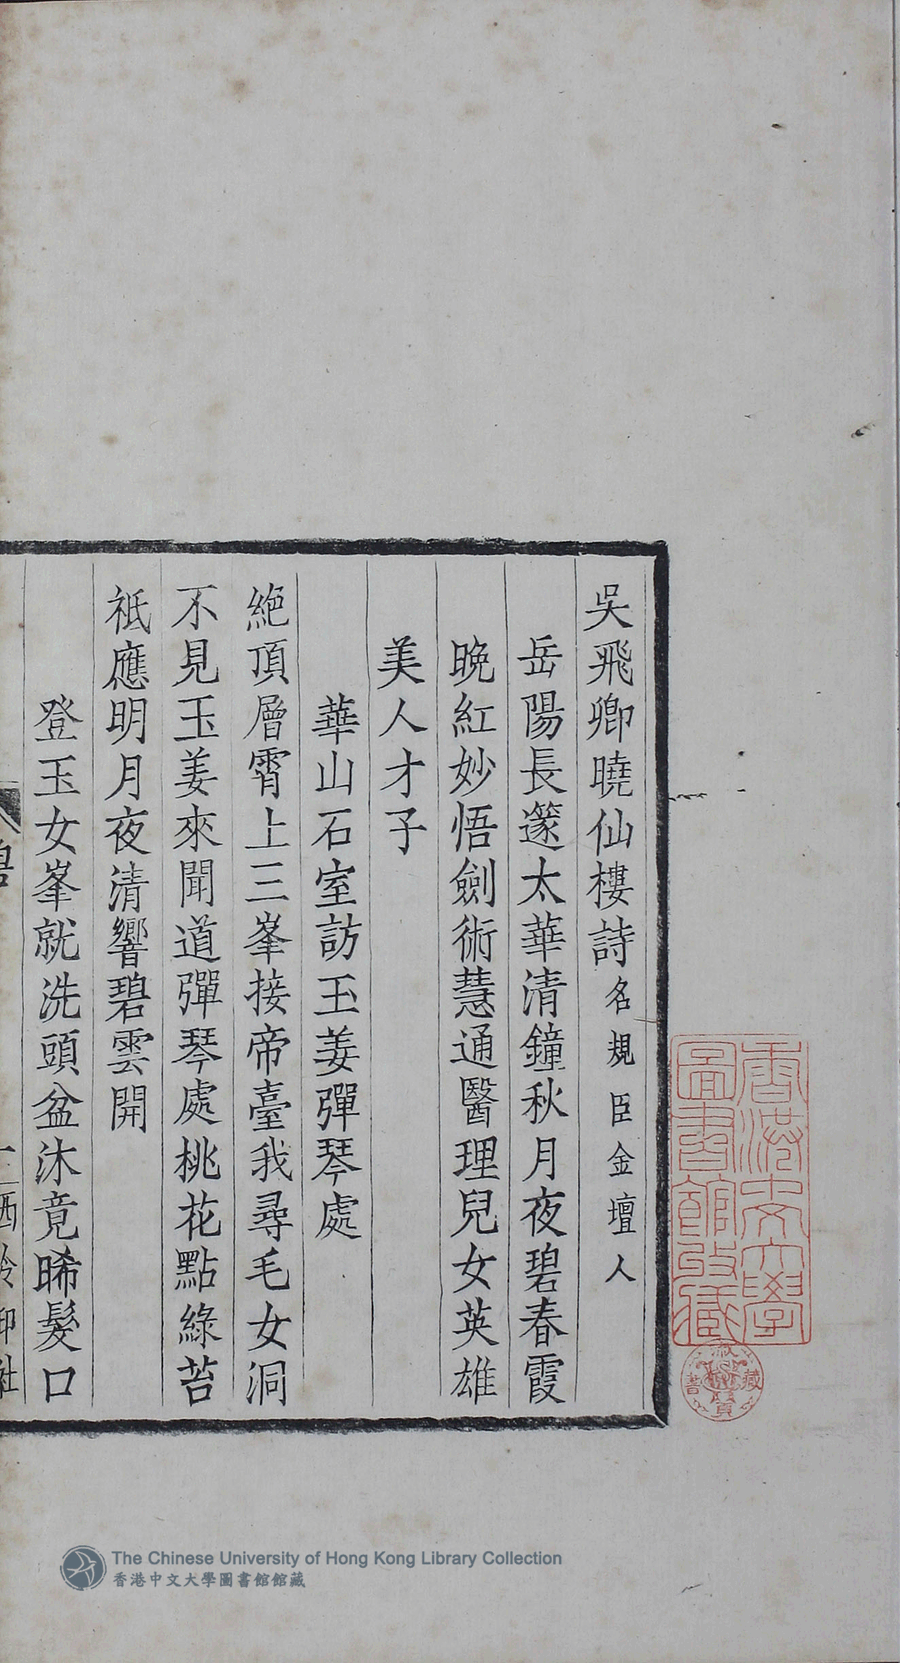 吳飛卿曉仙樓詩名規臣金壇人
岳陽長篴太華清鐘秋月夜碧春霞
晚紅妙悟劍術慧通醫理兒女英雄
美人才子
華山石室訪玉姜彈琴處
絶頂層霄上三峯接帝臺我尋毛女洞
不見玉姜來聞道彈琴處桃花點綠苔
祇應明月夜清響碧雲開
登玉女峯就洗頭盆沐竟晞髮口
西泠印社
香港中文大學
圖書館收藏
The Chinese University of Hong Kong Library Collection
香港中文大學圖書館館藏